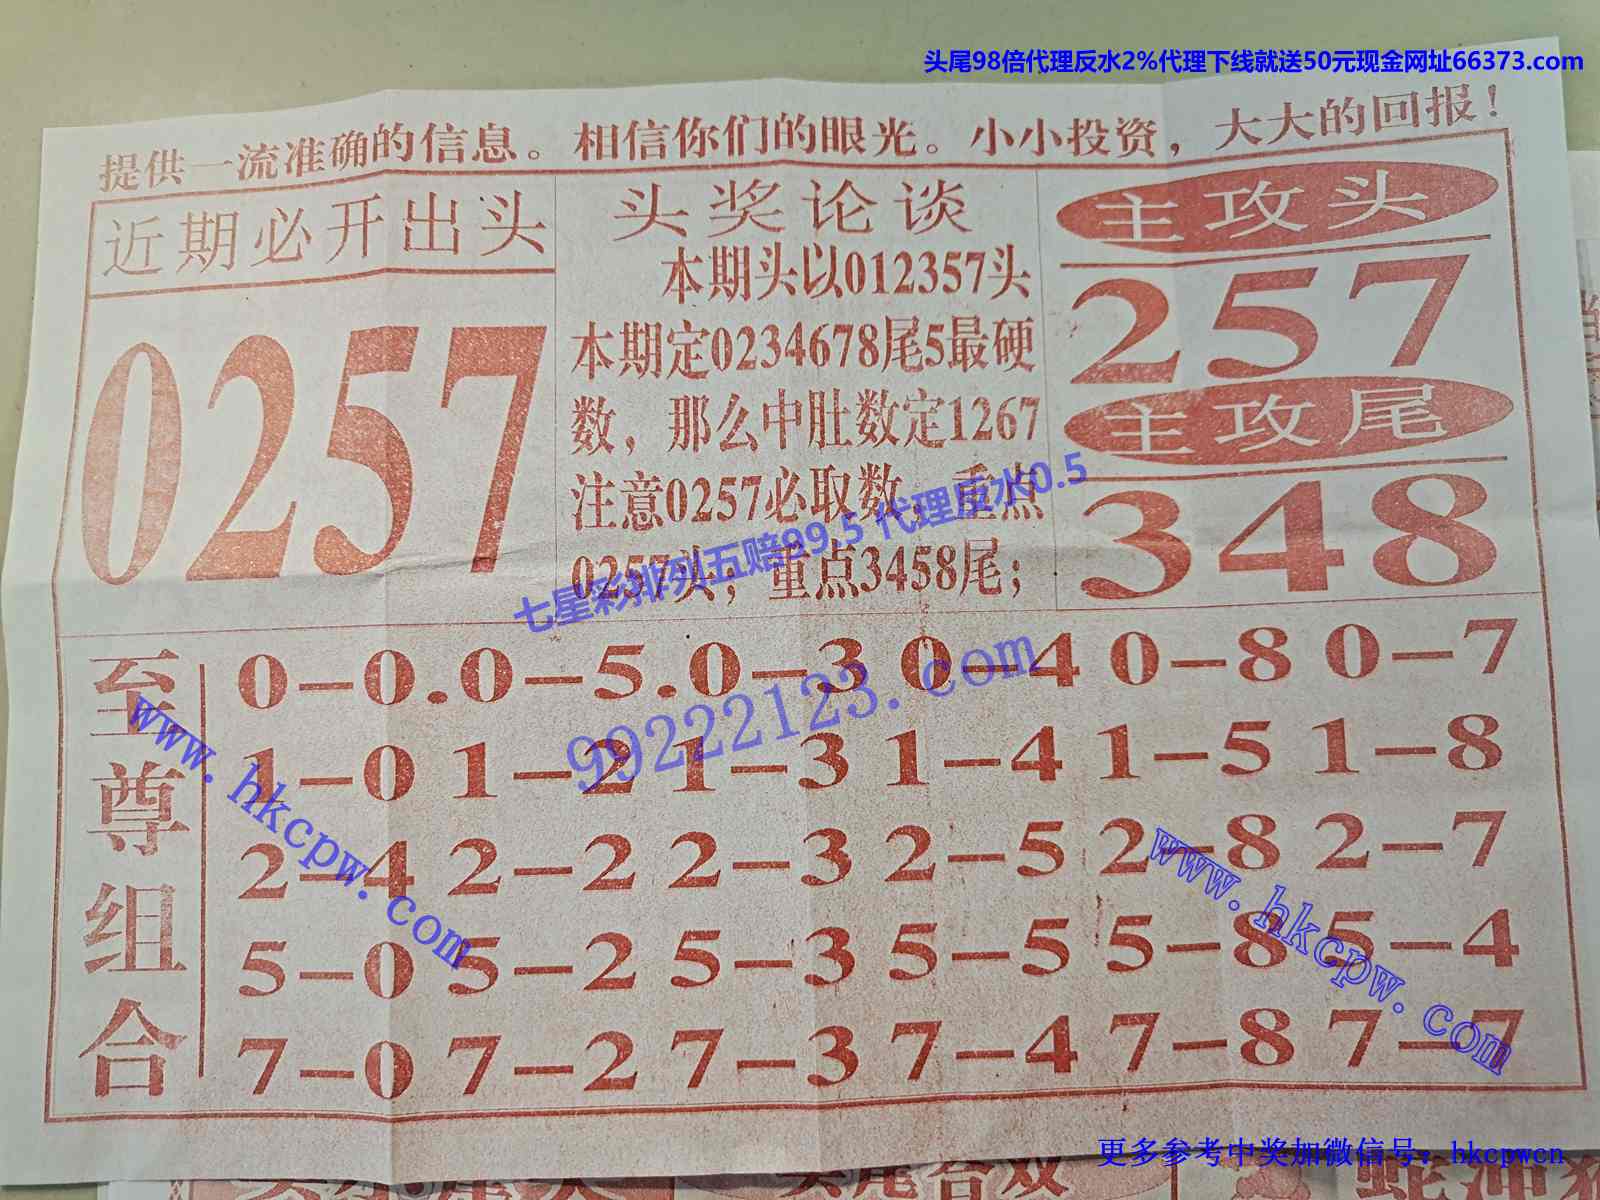 头尾98倍代理反水2%代理下线就送50元现金网址66373.com
提供一流准确的信息。相信你们的眼光。小小投资，大大的回报！
近期必开出头
0257
头奖论谈
本期头以012357头
本期定0234678尾5最硬
数，那么中肚数定1267
注意0257必取数，重点
0257头；重点3458尾；
主攻头
257
主攻尾
348
七星彩排列五赔99.5 代理反水0.5
99222123.com
至尊组合
0–0.0–5.0–3 0–4 0–8 0–7
1–0 1–2 1–3 1–4 1–5 1–8
2–4 2–2 2–3 2–5 2–8 2–7
5–0 5–2 5–3 5–5 5–8 5–4
7–0 7–2 7–3 7–4 7–8 7–7
www.hkcpw.com
www.hkcpw.com
更多参考中奖加微信号：hkcpwcn
头尾合双